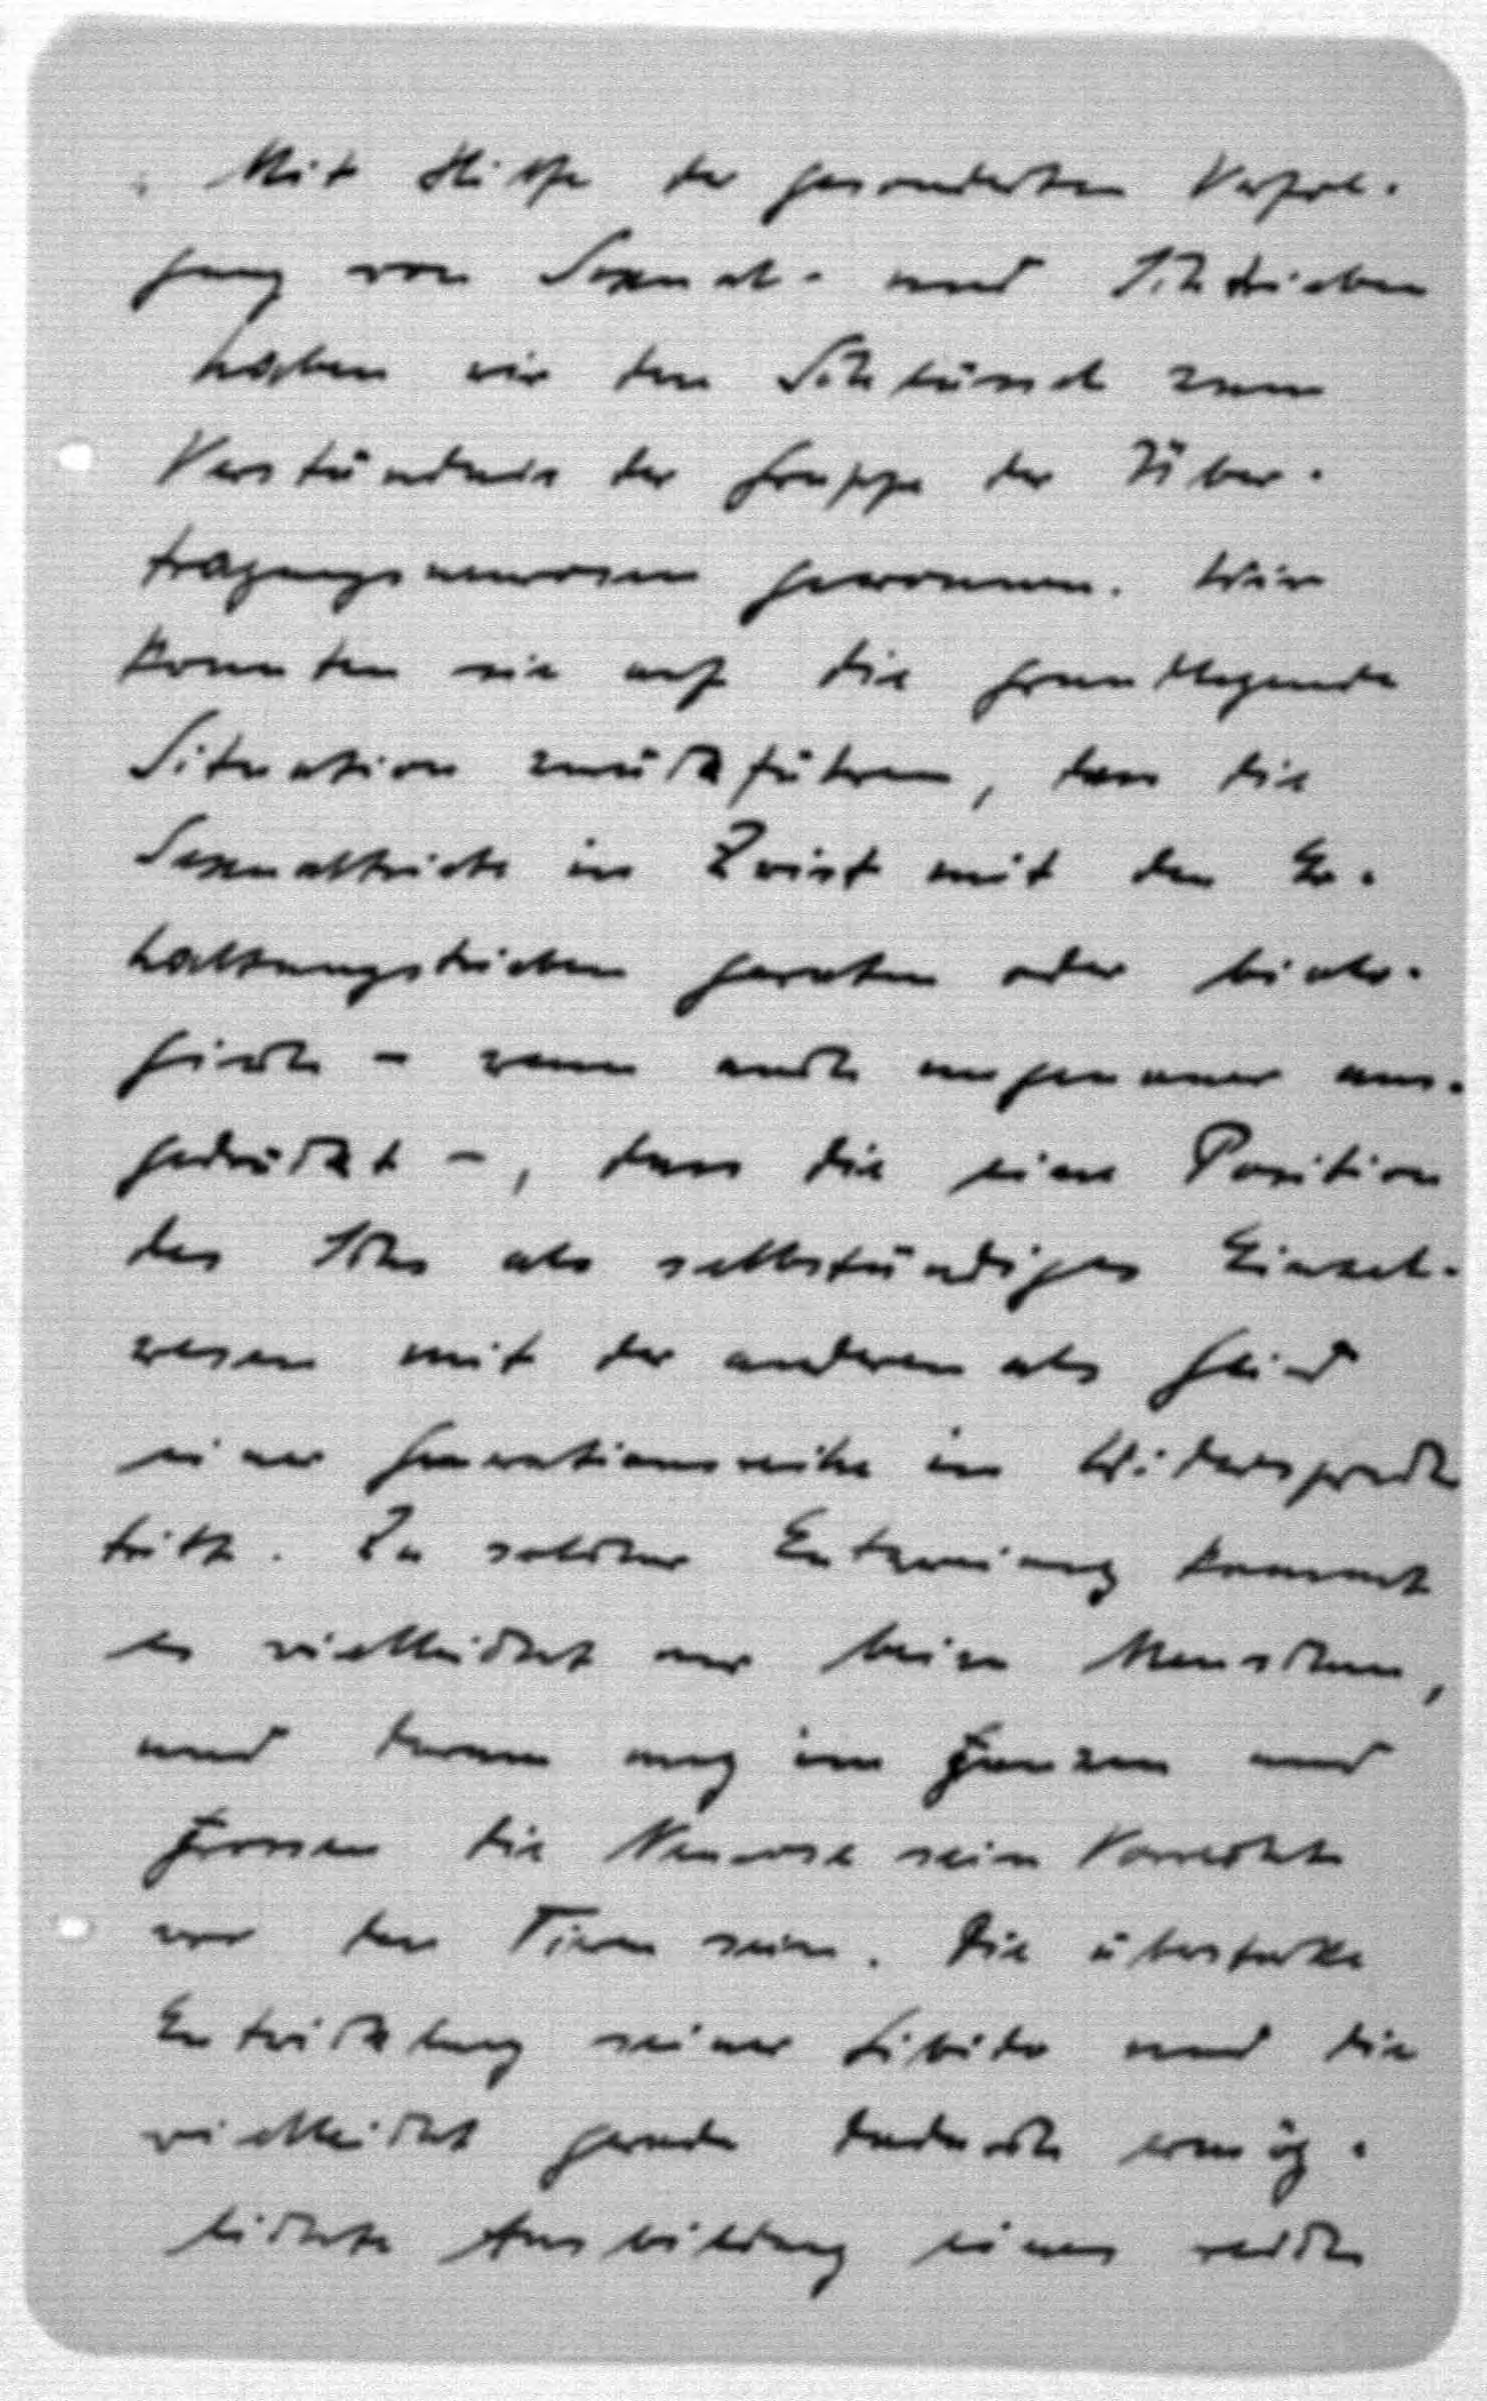 Mit Hilfe der gesonderten Verfol-
gung von Sexual- und Ichtrieben
haben wir den Schlüssel zum
Verständnis der Gruppe der Über-
tragungsneurosen gewonnen. Wir
konnten sie auf die grundlegende
Situation zurückführen, dass die
Sexualtriebe in Zwist mit den Er-
haltungstrieben geraten oder biolo-
gisch - wenn auch ungenauer aus-
gedrückt -, dass die eine Position
des Ichs als selbständiges Einzel-
wesen mit der anderen als Glied
einer Generationsreihe in Widerspruch
tritt. Zu solcher Entzweiung kommt
es vielleicht nur beim Menschen,
und darum mag im Ganzen und
Grossen die Neurose sein Vorrecht
vor den Tieren sein. Die überstarke
Entwicklung seiner Libido und die
vielleicht gerade dadurch ermög-
lichte Ausbildung eines reich